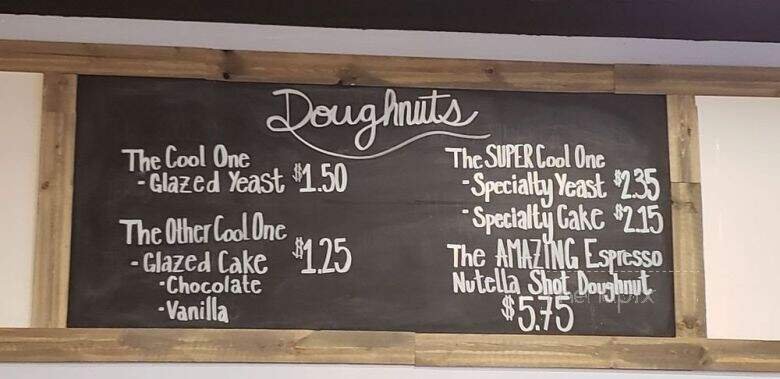 Doughnuts
The Cool One
- Glazed Yeast $1.50
The Other Cool One
- Glazed Cake $1.25
- Chocolate
- Vanilla
The SUPER Cool One
- Specialty Yeast $2.35
- Specialty Cake $2.15
The AMAZING Espresso
Nutella Shot Doughnut
$5.75
menupix